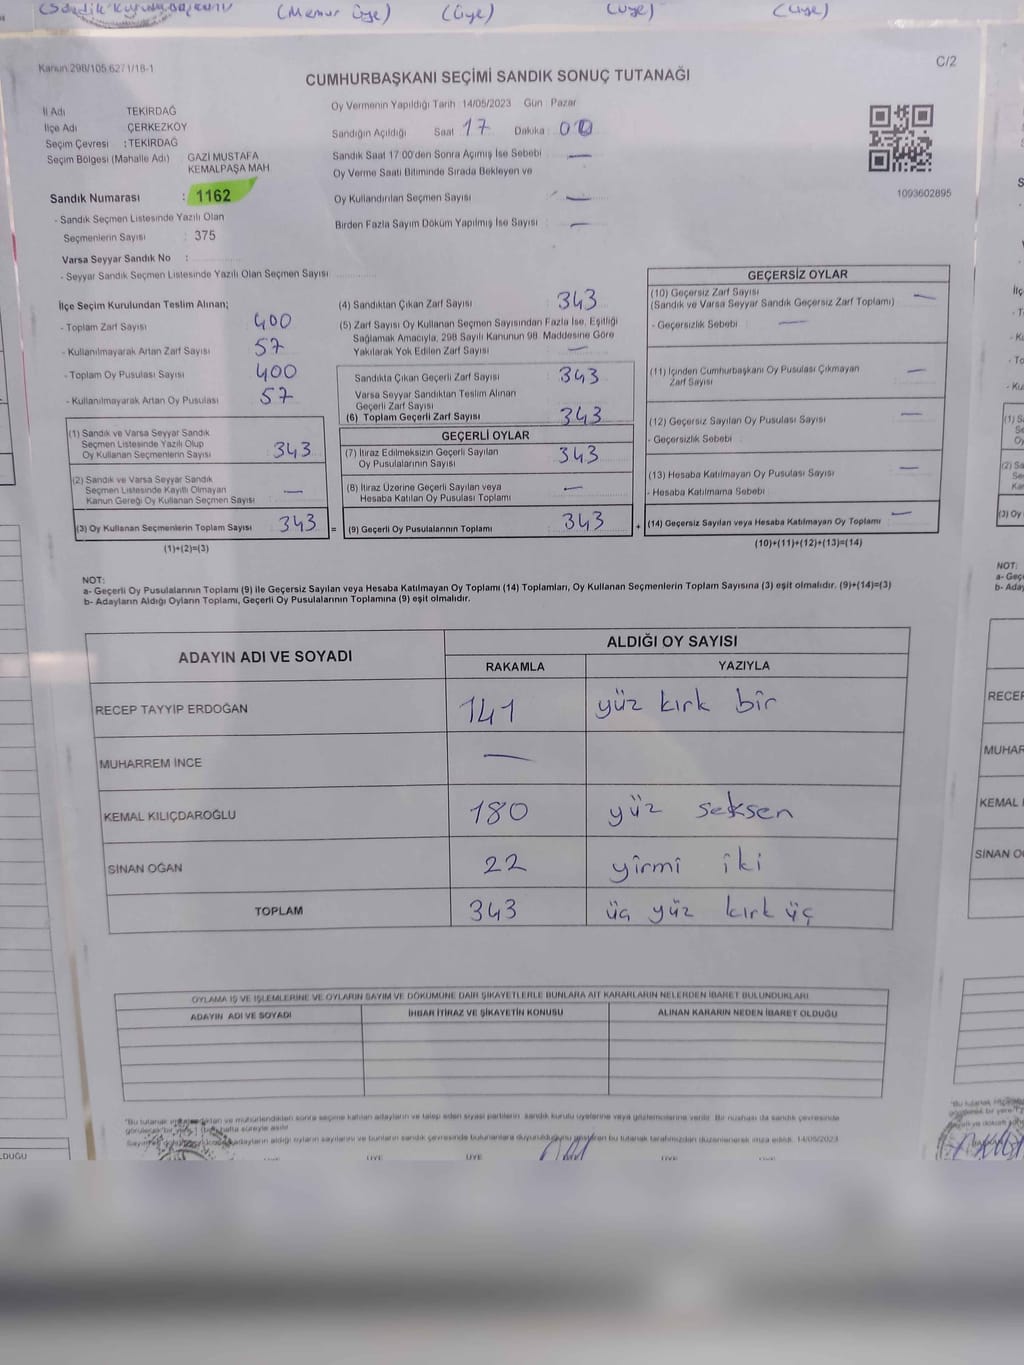 (Memur üye) (üye) (üye) (üye)
Kanun:298/105,6271/18-1
C/2
CUMHURBAŞKANI SEÇİMİ SANDIK SONUÇ TUTANAĞI
İl Adı TEKİRDAĞ
İlçe Adı ÇERKEZKÖY
Seçim Çevresi : TEKİRDAĞ
Seçim Bölgesi (Mahalle Adı) GAZİ MUSTAFA
KEMALPAŞA MAH
Sandık Numarası : 1162
- Sandık Seçmen Listesinde Yazılı Olan
Seçmenlerin Sayısı : 375
Varsa Seyyar Sandık No :
- Seyyar Sandık Seçmen Listesinde Yazılı Olan Seçmen Sayısı
Oy Vermenin Yapıldığı Tarih 14/05/2023 Gün Pazar
Sandığın Açıldığı Saat 17 Dakika : 00
Sandık Saat 17:00'den Sonra Açımış İse Sebebi —
Oy Verme Saati Bitiminde Sırada Bekleyen ve
Oy Kullandırılan Seçmen Sayısı : —
Birden Fazla Sayım Döküm Yapılmış İse Sayısı : —
1093602895
İlçe Seçim Kurulundan Teslim Alınan;
- Toplam Zarf Sayısı 400
- Kullanılmayarak Artan Zarf Sayısı 57
- Toplam Oy Pusulası Sayısı 400
- Kullanılmayarak Artan Oy Pusulası 57
(1) Sandık ve Varsa Seyyar Sandık
Seçmen Listesinde Yazılı Olup
Oy Kullanan Seçmenlerin Sayısı 343
(2) Sandık ve Varsa Seyyar Sandık
Seçmen Listesinde Kayıtlı Olmayan
Kanun Gereği Oy Kullanan Seçmen Sayısı —
(3) Oy Kullanan Seçmenlerin Toplam Sayısı 343
(1)+(2)=(3)
(4) Sandıktan Çıkan Zarf Sayısı 343
(5) Zarf Sayısı Oy Kullanan Seçmen Sayısından Fazla İse, Eşitliği
Sağlamak Amacıyla, 298 Sayılı Kanunun 98. Maddesine Göre
Yakılarak Yok Edilen Zarf Sayısı —
Sandıkta Çıkan Geçerli Zarf Sayısı 343
Varsa Seyyar Sandıktan Teslim Alınan
Geçerli Zarf Sayısı
(6) Toplam Geçerli Zarf Sayısı 343
GEÇERLİ OYLAR
(7) İtiraz Edilmeksizin Geçerli Sayılan
Oy Pusulalarının Sayısı 343
(8) İtiraz Üzerine Geçerli Sayılan veya
Hesaba Katılan Oy Pusulası Toplamı —
= (9) Geçerli Oy Pusulalarının Toplamı 343 +
GEÇERSİZ OYLAR
(10) Geçersiz Zarf Sayısı
(Sandık ve Varsa Seyyar Sandık Geçersiz Zarf Toplamı) —
- Geçersizlik Sebebi : —
(11) İçinden Cumhurbaşkanı Oy Pusulası Çıkmayan
Zarf Sayısı —
(12) Geçersiz Sayılan Oy Pusulası Sayısı —
- Geçersizlik Sebebi :
(13) Hesaba Katılmayan Oy Pusulası Sayısı —
- Hesaba Katılmama Sebebi
(14) Geçersiz Sayılan veya Hesaba Katılmayan Oy Toplamı —
(10)+(11)+(12)+(13)=(14)
NOT:
a- Geçerli Oy Pusulalarının Toplamı (9) ile Geçersiz Sayılan veya Hesaba Katılmayan Oy Toplamı (14) Toplamları, Oy Kullanan Seçmenlerin Toplam Sayısına (3) eşit olmalıdır. (9)+(14)=(3)
b- Adayların Aldığı Oyların Toplamı, Geçerli Oy Pusulalarının Toplamına (9) eşit olmalıdır.
ADAYIN ADI VE SOYADI ALDIĞI OY SAYISI
RAKAMLA YAZIYLA
RECEP TAYYİP ERDOĞAN 141 yüz kırk bir
MUHARREM İNCE —
KEMAL KILIÇDAROĞLU 180 yüz seksen
SİNAN OĞAN 22 yirmi iki
TOPLAM 343 üç yüz kırk üç
OYLAMA İŞ VE İŞLEMLERİNE VE OYLARIN SAYIM VE DÖKÜMÜNE DAİR ŞİKAYETLERLE BUNLARA AİT KARARLARIN NELERDEN İBARET BULUNDUKLARI
ADAYIN ADI VE SOYADI İHBAR İTİRAZ VE ŞİKAYETİN KONUSU ALINAN KARARIN NEDEN İBARET OLDUĞU
ve mühürlendikten sonra seçime katılan adayların ve talep eden siyasi partilerin sandık kurulu üyelerine veya gözlemcilerine verilir. Bir nüshası da sandık çevresinde
hafta süreyle asılır
adayların aldığı oyların sayılarını ve bunların sandık çevresinde bulunanlara duyurulduğunu gösteren bu tutanak tarafımızdan düzenlenerek imza edildi. 14/05/2023
ÜYE ÜYE ÜYE